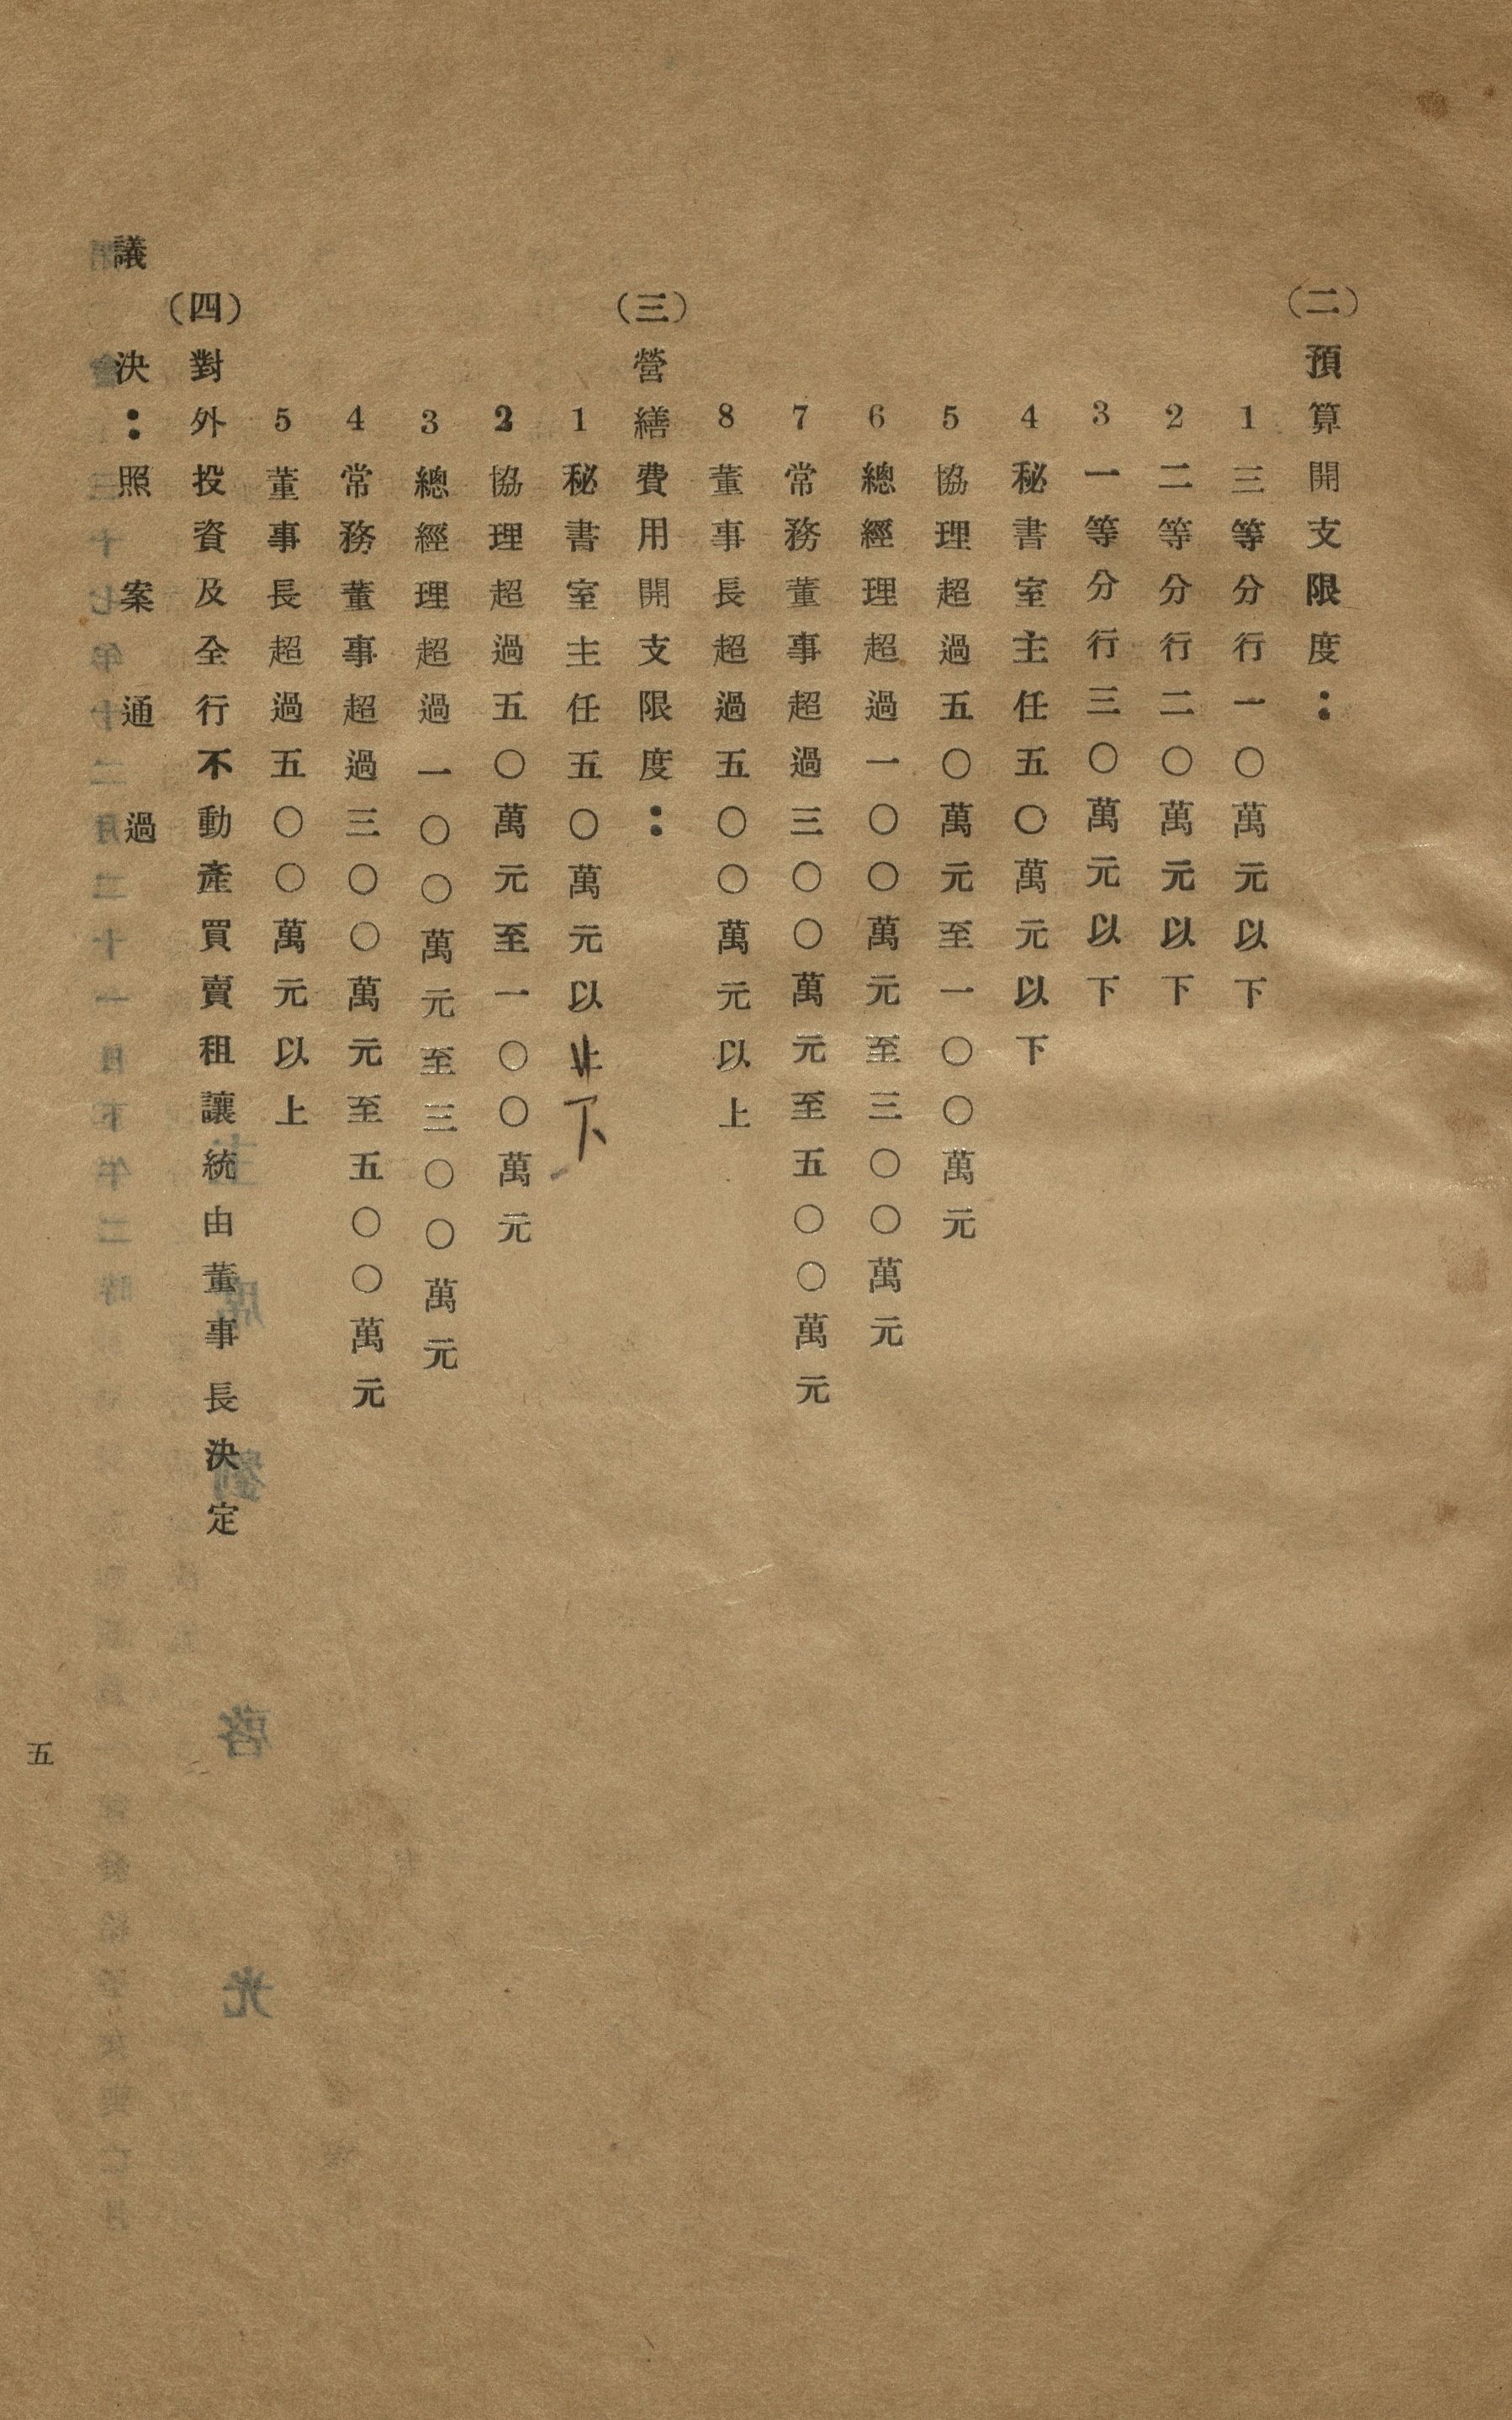 (二)預算開支限度：
1三等分行一〇萬元以下
2二等分行二〇萬元以下
3一等分行三〇萬元以下
4秘書室主任五〇萬元以下
5協理超過五〇萬元至一〇〇萬元
6總經理超過一〇〇萬元至三〇〇萬元
7常務董事超過三〇〇萬元至五〇〇萬元
8董事長超過五〇〇萬元以上
(三)營繕費用開支限度：
1秘書室主任五〇萬元以上下
2協理超過五〇萬元至一〇〇萬元
3總經理超過一〇〇萬元至三〇〇萬元
4常務董事超過三〇〇萬元至五〇〇萬元
5董事長超過五〇〇萬元以上
(四)對外投資及全行不動產買賣租讓統由董事長決定
議決：照案通過
五